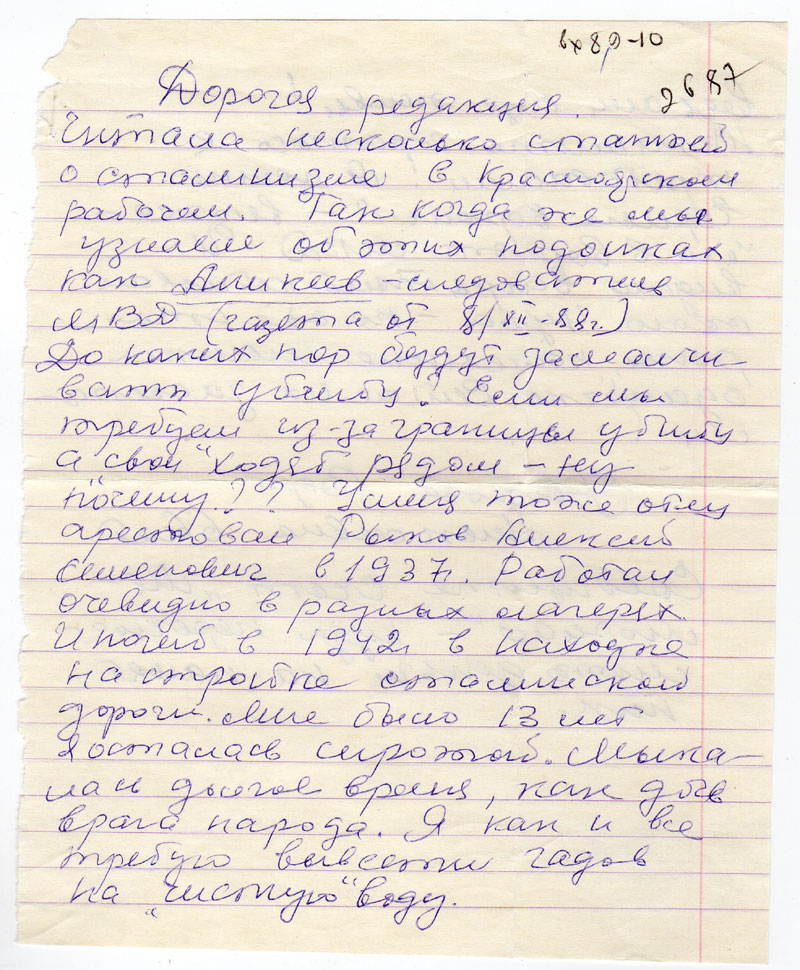 вх 89-10
2687
Дорогая редакция.
Читала несколько статтей
о сталинизме в Красноярском
рабочем. Так когда же мы
узнаем об этих подонках
как Аникеев - следователь
МВД (газета от 8/XII-88г.)
До каких пор будут замалчи
вать убийц? Если мы
требуем из-за границы убийц
а свои "ходят рядом - ну
почему?? У меня тоже отец
арестован Рыков Алексей
Семенович в 1937г. Работал
очевидно в разных лагерях
И погиб в 1942г. в Находке
на стройке сталинской
дороги. Мне было 13 лет
Я осталась сиротой. Мыка-
лась долгое время, как дочь
врага народа. Я как и все
требую вывести гадов
на "чистую" воду.